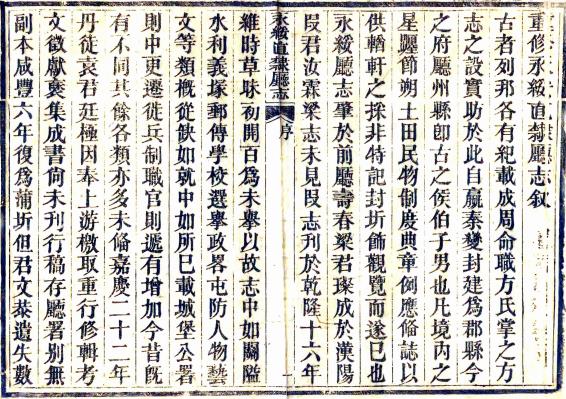 重修永綏直隸廳志叙
古者列邦各有紀載成周命職方氏掌之方
志之設實助於此自嬴秦變封建爲郡縣今
之府廳州縣卽古之侯伯子男也凡境內之
星躔節朔土田民物制度典章例應俻誌以
供輶軒之採非特記封圻飾觀覽而遂已也
永綏廳志肇於前廳壽春梁君瑧成於漢陽
叚君汝霖梁志未見叚志刊於乾隆十六年
永綏直隸廳志
序
一
維時草昧初開百爲未舉以故志中如關隘
水利義塚郵傳學校選舉政畧屯防人物藝
文等類槪從缺如就中如所已載城堡公署
則中更遷徙兵制職官則遞有增加今昔旣
有不同其餘各類亦多未俻嘉慶二十二年
丹徒袁君廷極因奉上游檄取重行修輯考
文徵獻裒集成書尚未刊行稿存廳署別無
副本咸豐六年復爲蒲圻但君文恭遺失數